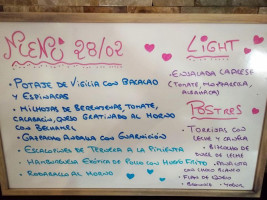 MENÚ 28/02
• POTAJE DE VIGILIA CON BACALAO
Y ESPINACAS
• MILHOJAS DE BERENJENAS, TOMATE,
CALABACÍN, QUESO GRATINADO AL HORNO
CON BECHAMEL
• GAZPACHO ANDALUZ CON GUARNICIÓN
• ESCALOPINES DE TERNERA A LA PIMIENTA
• HAMBURGUESA EXÓTICA DE POLLO CON HUEVO FRITO
• RODABALLO AL HORNO
LIGHT
• ENSALADA CAPRESE
(TOMATE, MOZZARELLA,
ALBAHACA)
POSTRES
• TORRIJAS CON
LECHE Y CANELA
• BIZCOCHO DE
DULCE DE LECHE
CON CHOCO BLANCO
• FLAN DE QUESO
• BROWNIE • YOGUR